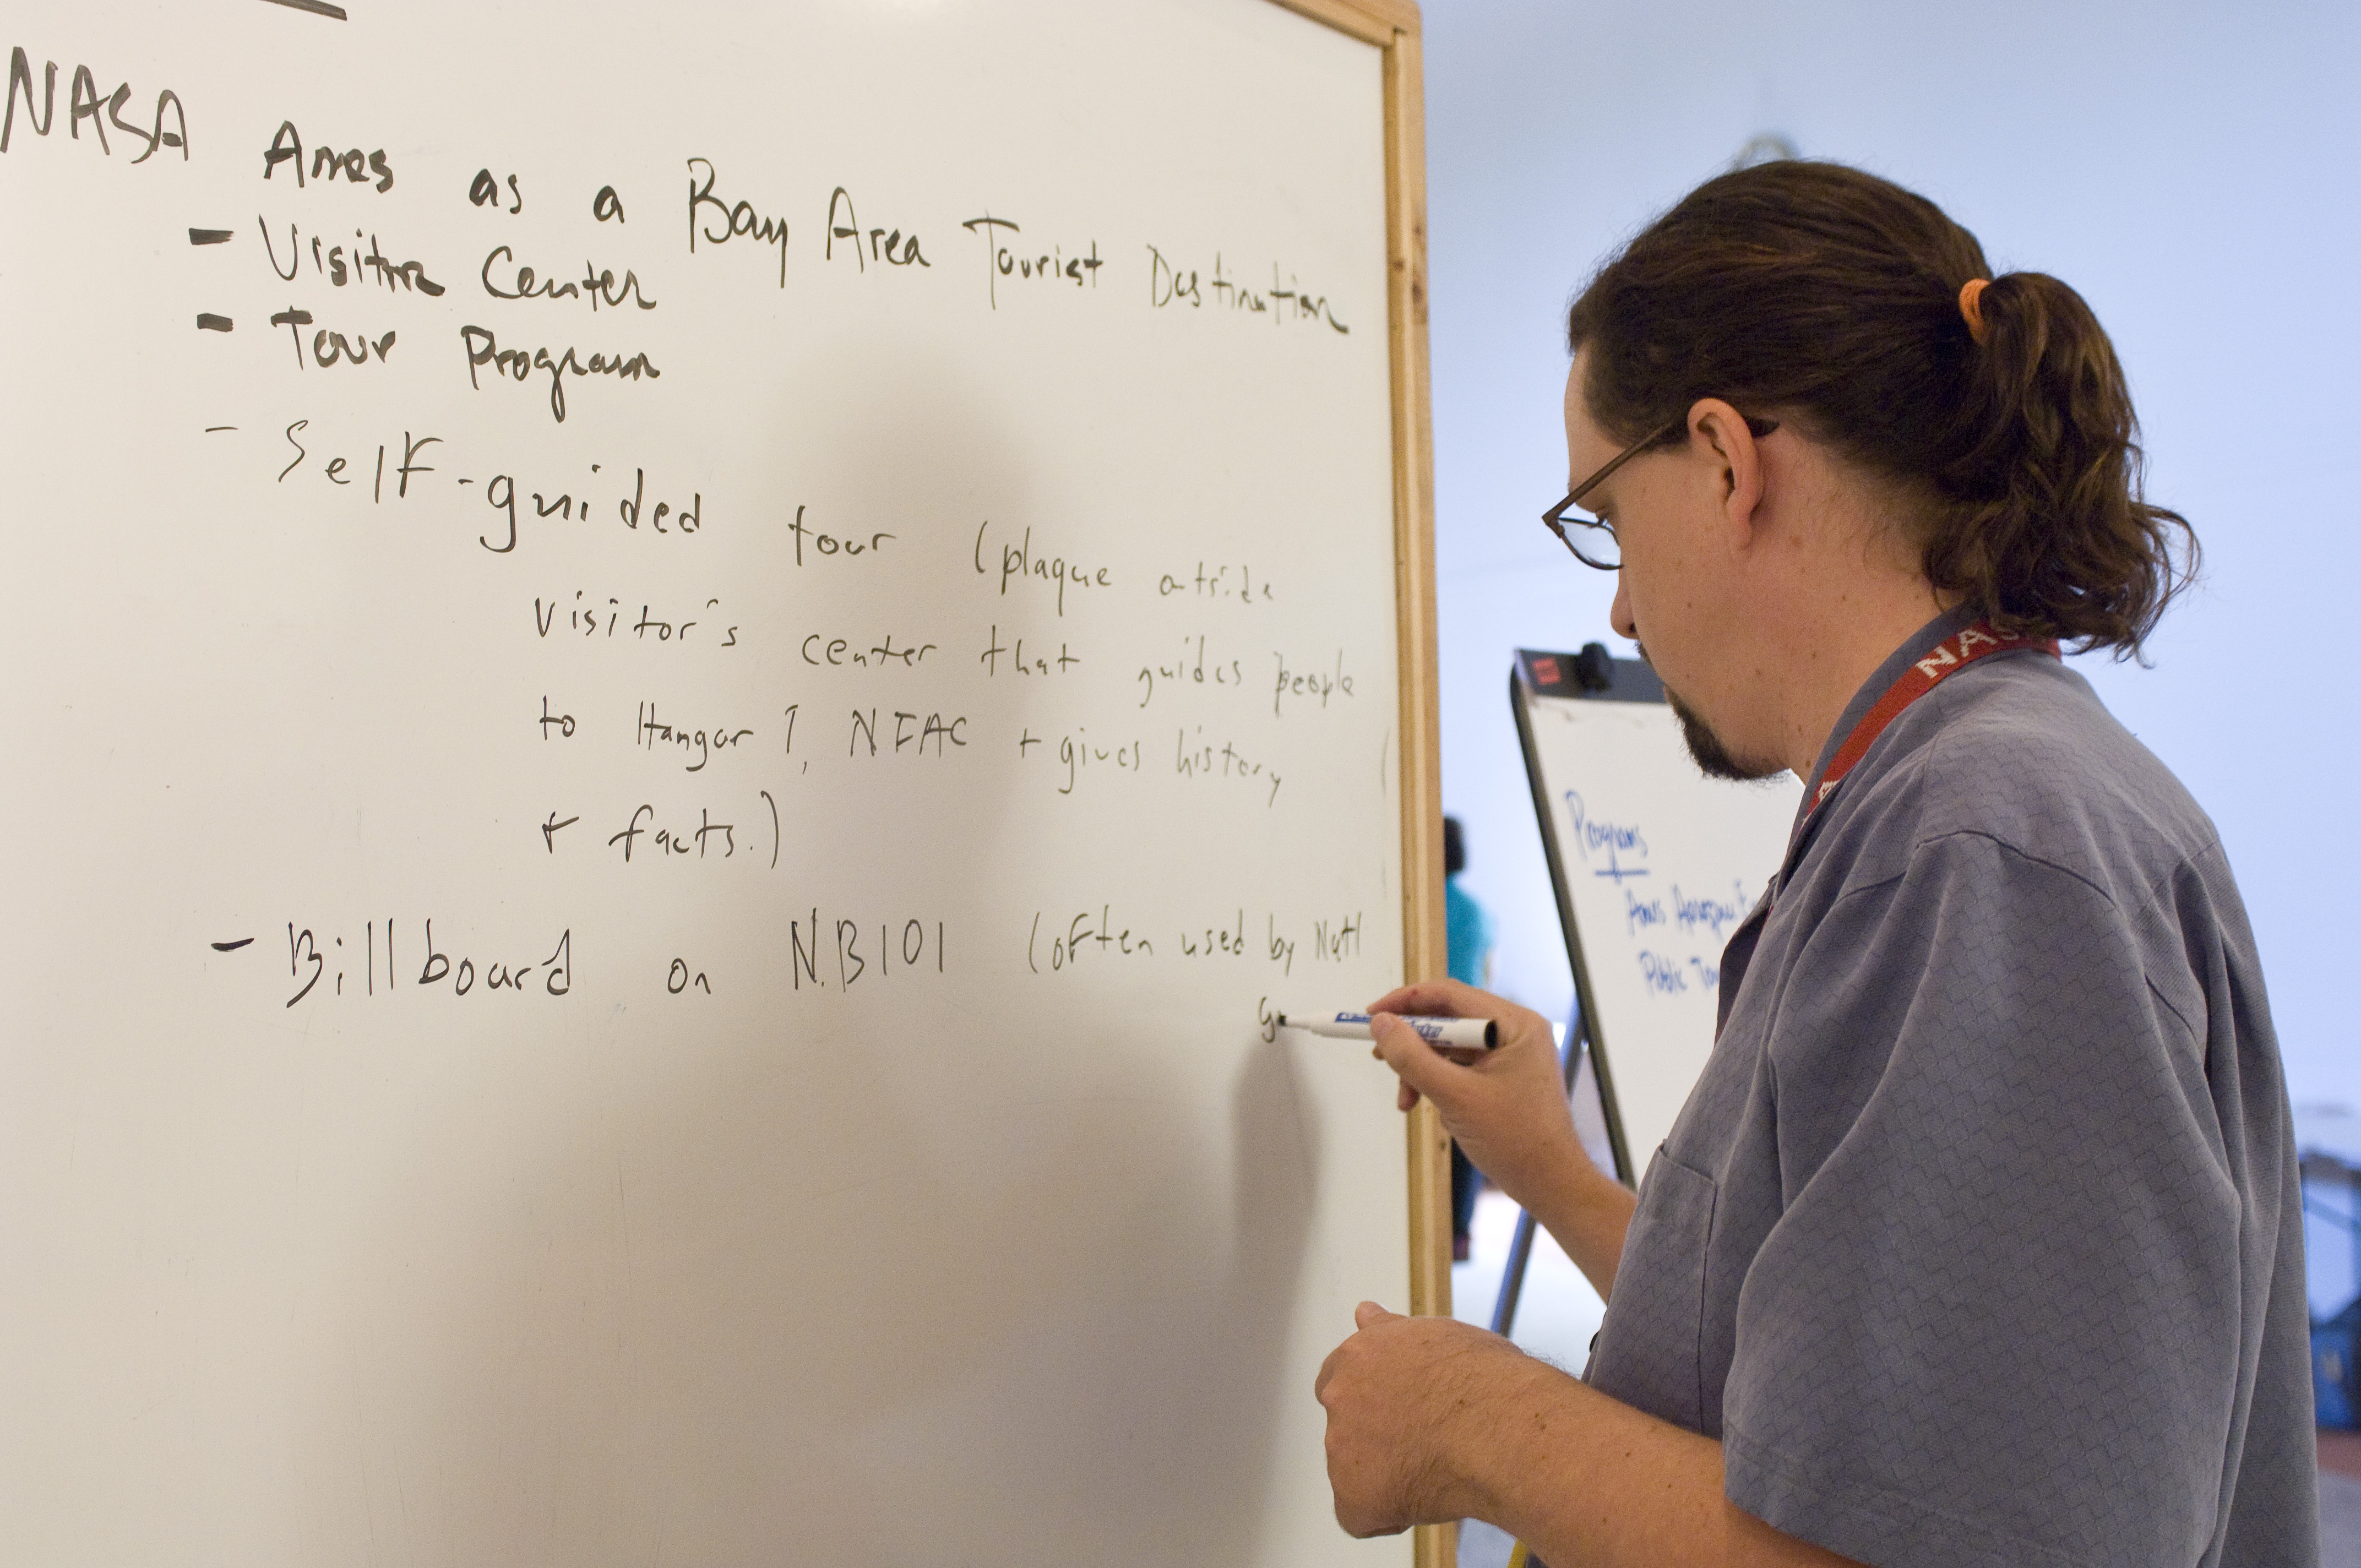 NASA Ames as a Bay Area Tourist Destination
- Visitor Center
- Tour Program
- Self-guided tour (plaque outside
visitor's center that guides people
to Hangar 1, NFAC + gives history
+ facts.)
- Billboard on N.B 101 (often used by Nat'l
G
NAS
Programs
Ames Aerospace E
Public Tou